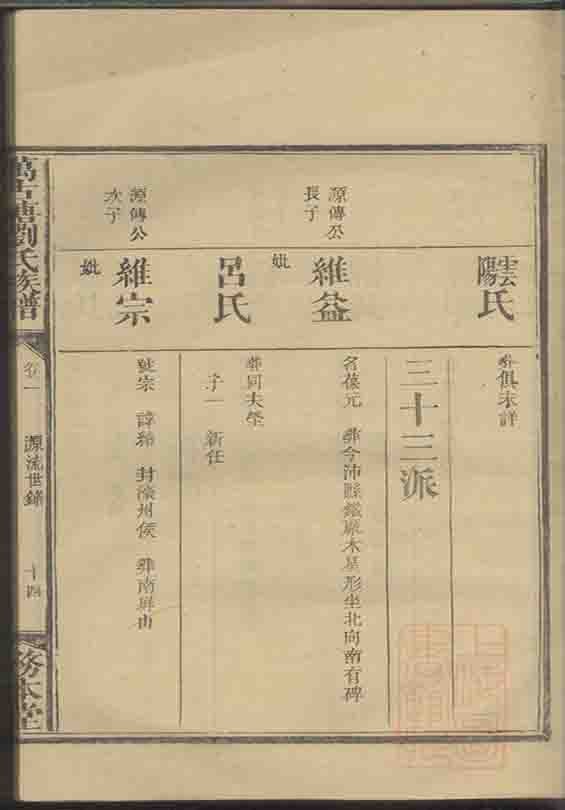 雲陽氏
葬俱未詳
三十三派
源傳公
長子
維益
名葆元 葬今沛縣 木星形坐北向南有碑
妣
呂氏
葬同夫塋
子一 新任
源傳公
次子
維宗
號宗 諱 封 州侯 葬南屏山
妣
萬古塘劉氏族譜
卷一
源流世錄
十四
務本堂